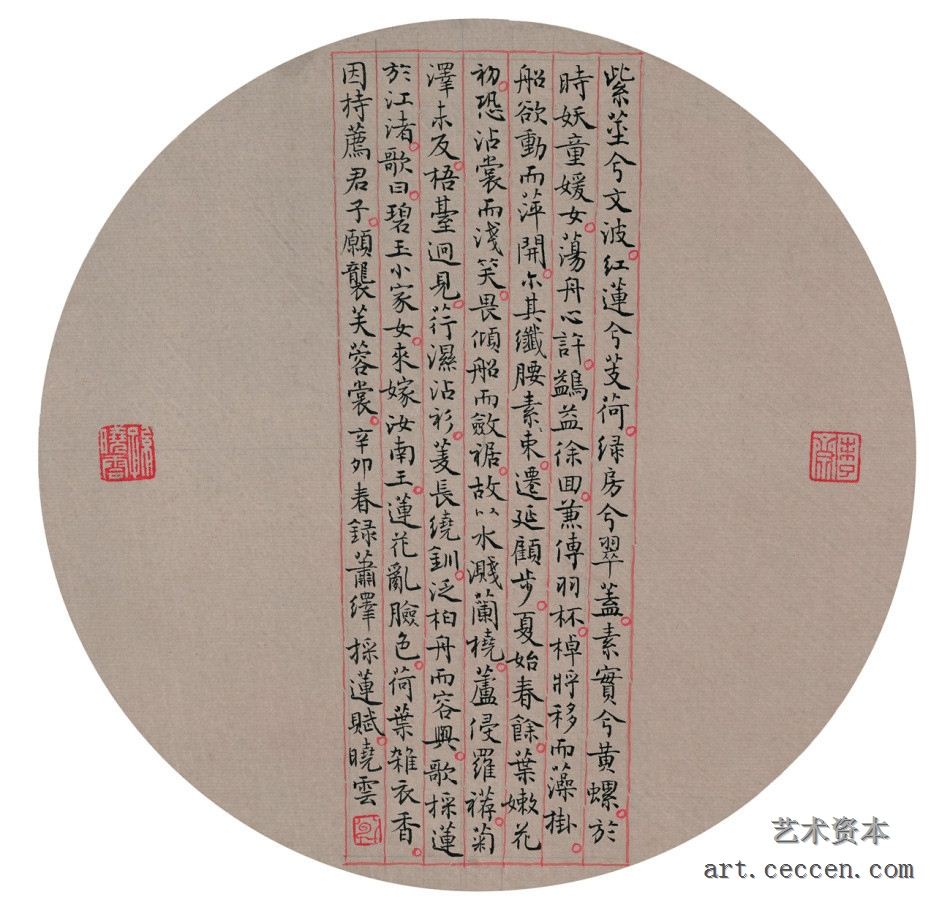 紫莖兮文波。红蓮兮芰荷。绿房兮翠蓋。素實兮黄螺。於
時妖童媛女。蕩舟心許。鷁益徐回。蒹傳羽杯。棹將移而藻掛。
船欲動而萍開。尒其纖腰素束。遷延顧步。夏始春餘。葉嫩花
初。恐沾裳而淺笑。畏傾船而斂裾。故以水濺蘭橈。蘆侵羅襟。菊
澤未反。梧臺迥見。荇濕沾衫。菱長繞釧。泛柏舟而容興。歌採蓮
於江渚。歌曰。碧玉小家女。來嫁汝南王。蓮花亂臉色。荷葉雑衣香。
因持薦君子。願襲芙蓉裳。辛卯春録蕭繹採蓮賦。曉雲
艺术资本
art.ceccen.com